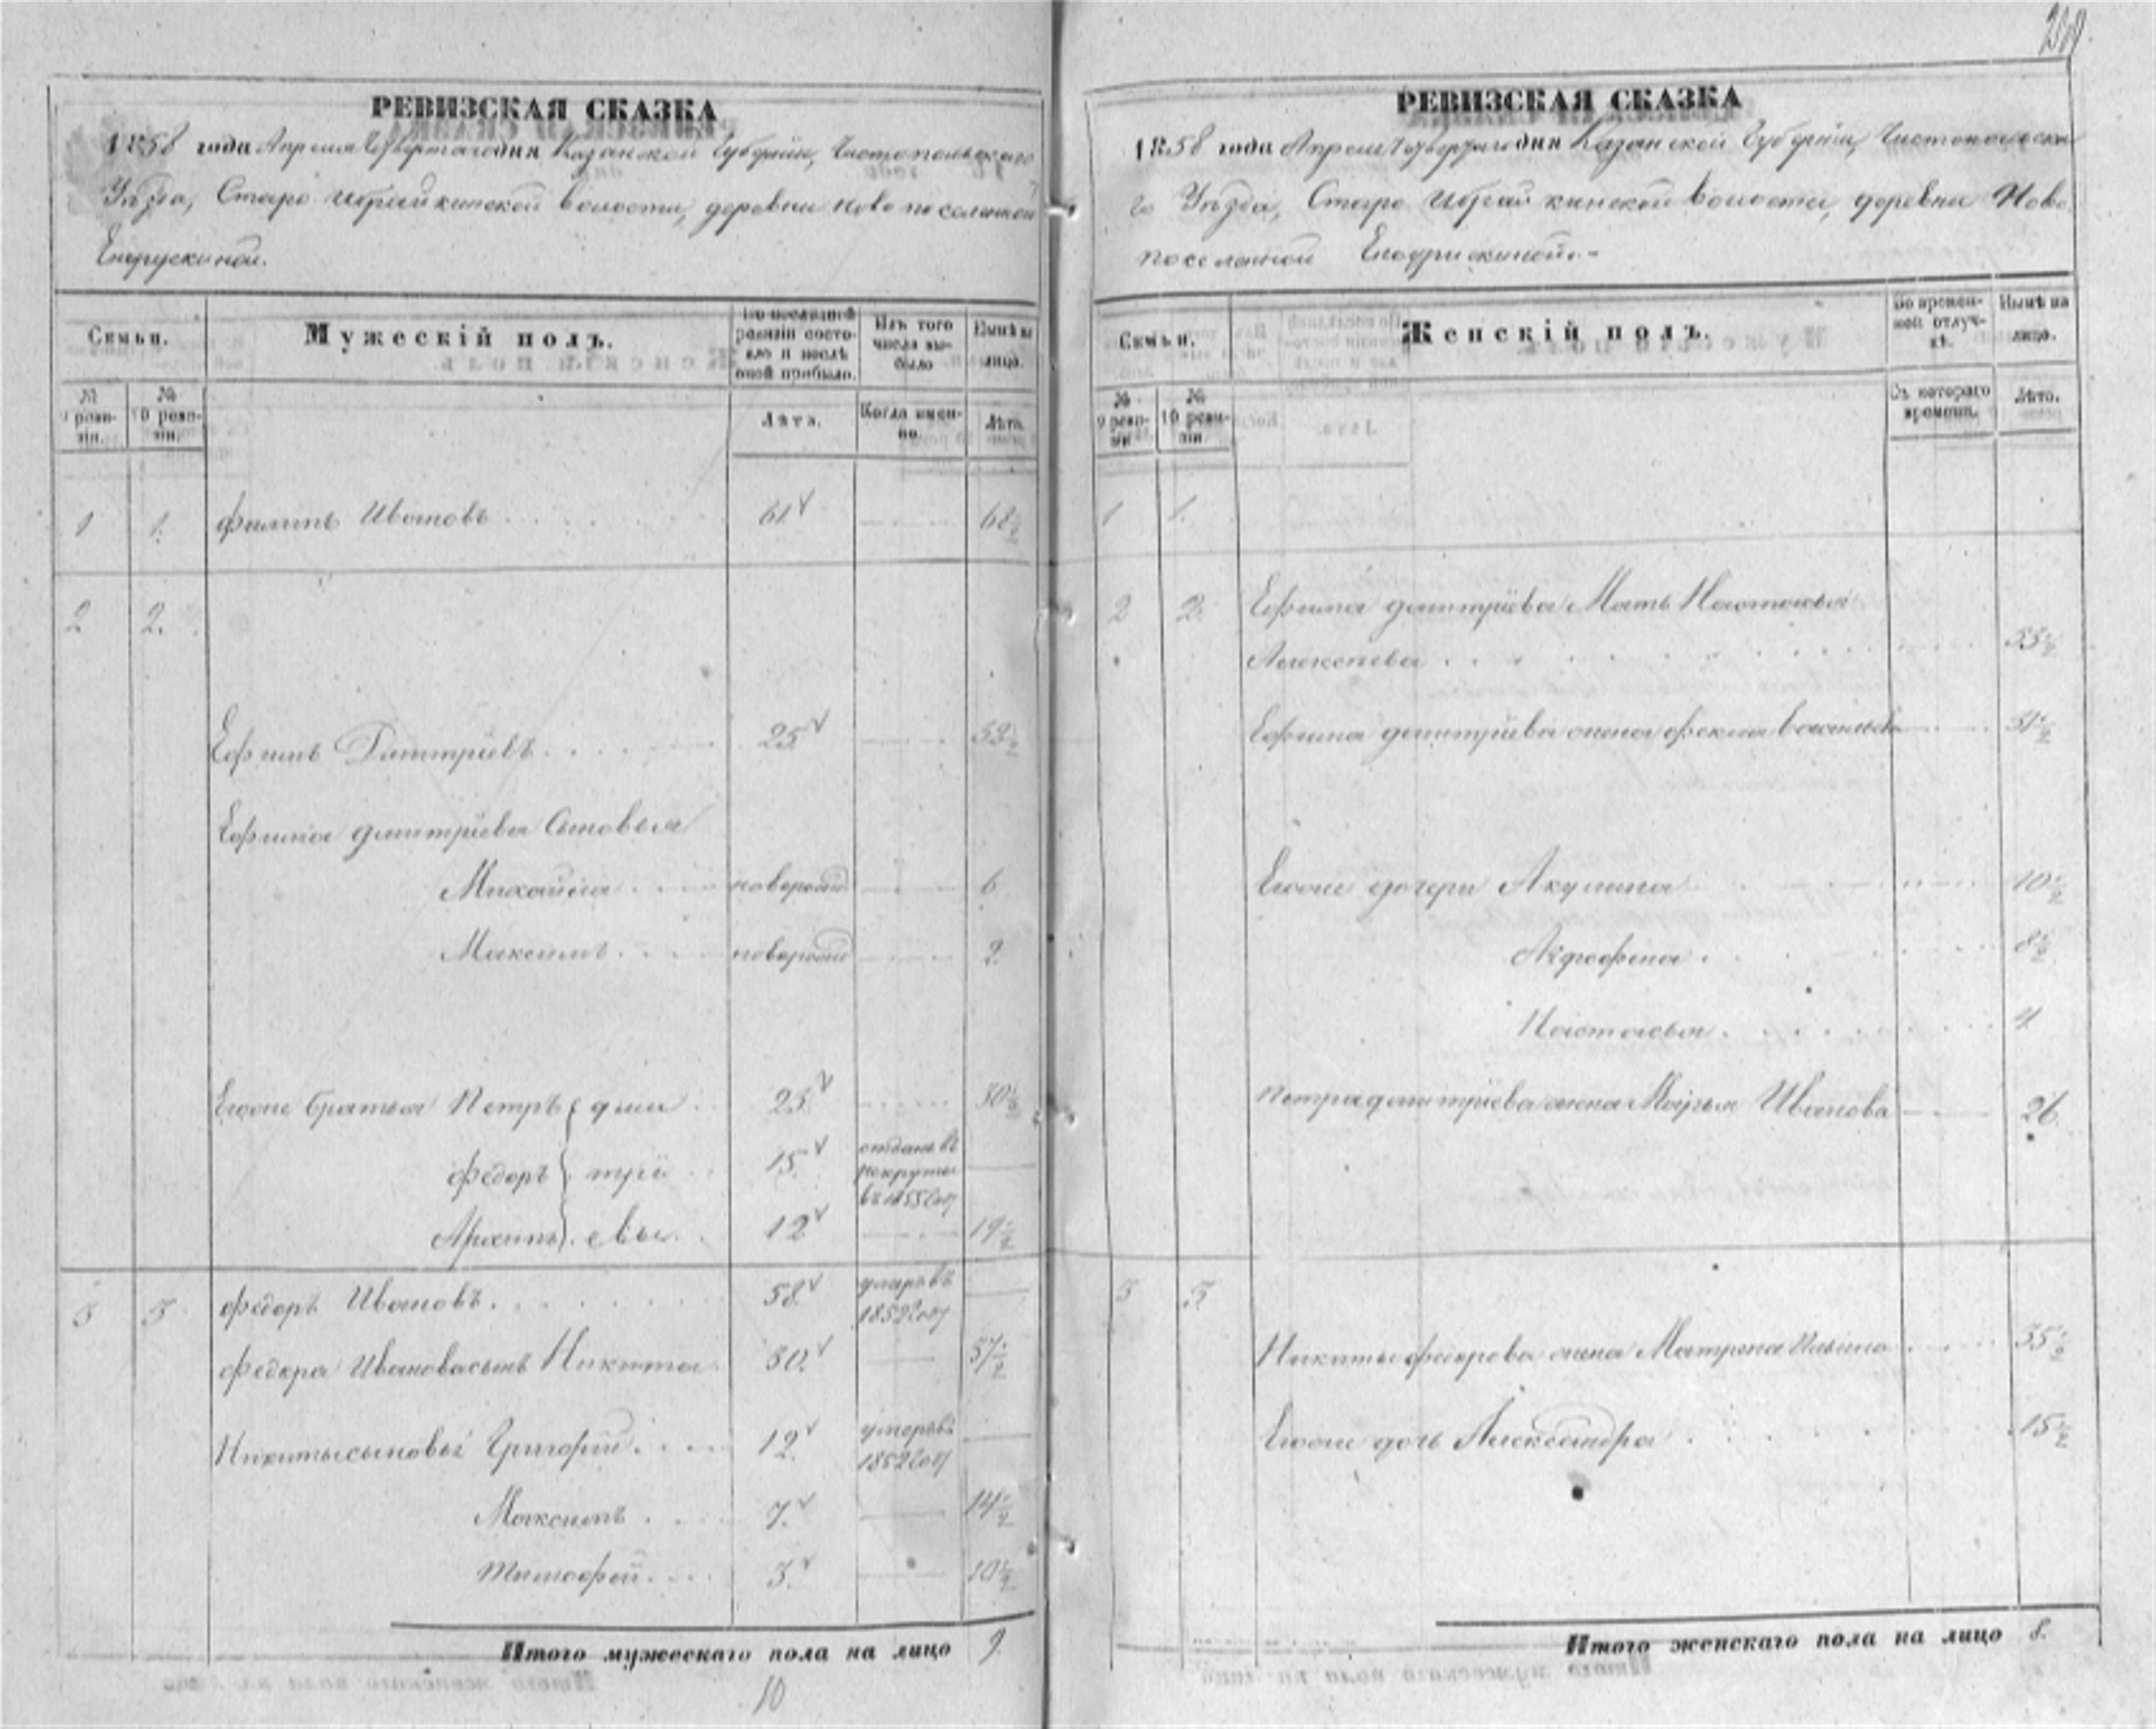 РЕВИЗСКАЯ СКАЗКА
1858 года Апреля Четвертаго дня Казанской Губерніи, Чистопольскаго
Уѣзда, Старо Ибрайкинской волости, деревни Ново поселенной
Семьи.
Мужескій полъ.
По последней ревизіи состояло и послѣ оной прибыло.
Изъ того числа выбыло
Нынѣ на лицо.
№ 9 ревизіи.
№ 10 ревизіи.
Лѣта.
Когда именно.
Лѣта.
1 1. Филипъ Ивановъ 61 68½
2 2.
Ефимъ Дмитріевъ 25 32½
Ефима Дмитріева Сыновья
Михайла новорожд 6
Максимъ новорожд 2
Егоже братья Петръ Дми 23 30½
Федоръ трі 15 отданъ въ рекруты въ 1855 году
Архипъ евы 12 19½
3 3 Федоръ Ивановъ 58 умеръ въ 1852 году
Федора Иванова сынъ Никита 30 37½
Никиты сыновья Григорій 12 умеръ въ 1852 году
Максимъ 7 14½
Тимофей 3 10½
Итого мужескаго пола на лицо 9
10
РЕВИЗСКАЯ СКАЗКА
1858 года Апреля Четвертаго дня Казанской Губерніи, Чистопольска
го Уѣзда, Старо Ибрайкинской волости, деревни Ново
поселенной
Семьи.
Женскій полъ.
Во временной отлучкѣ.
Нынѣ на лицо.
№ 9 ревизіи
№ 10 ревизіи.
Съ котораго времени.
Лѣта.
1 1.
2 2. Ефима Дмитріева Мать Настасья
Алексеева 55½
Ефима Дмитріева жена Фекла 31½
Егоже дочери Акулина 10½
Аграфена 8½
Настасья 4
Петра Дмитріева жена Марья Иванова 26
3 3
Никиты Федорова жена Матрена Ильина 35½
Егоже дочь Александра 15½
Итого женскаго пола на лицо 8.